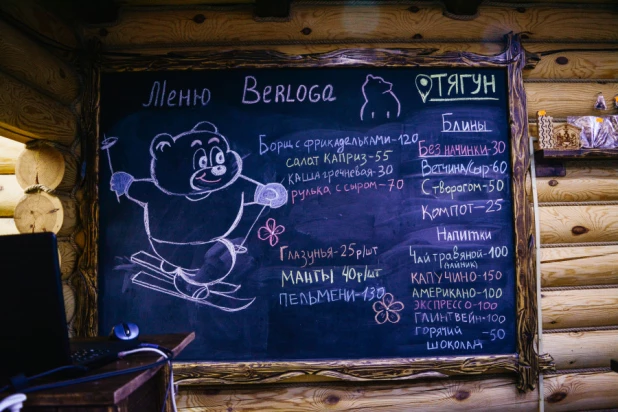 Меню Berloga
Тягун
Борщ с фрикадельками-120
салат Каприз-55
каша гречневая-30
рулька с сыром-70
Глазунья-25р/шт
Манты 40р/шт
Пельмени-130
Блины
Без начинки-30
Ветчина/сыр-60
Створогом-50
Компот-25
Напитки
Чай травяной-100
(чайник)
Капучино-150
Американо-100
Экспрессо-100
Глинтвейн-100
горячий -50
шоколад